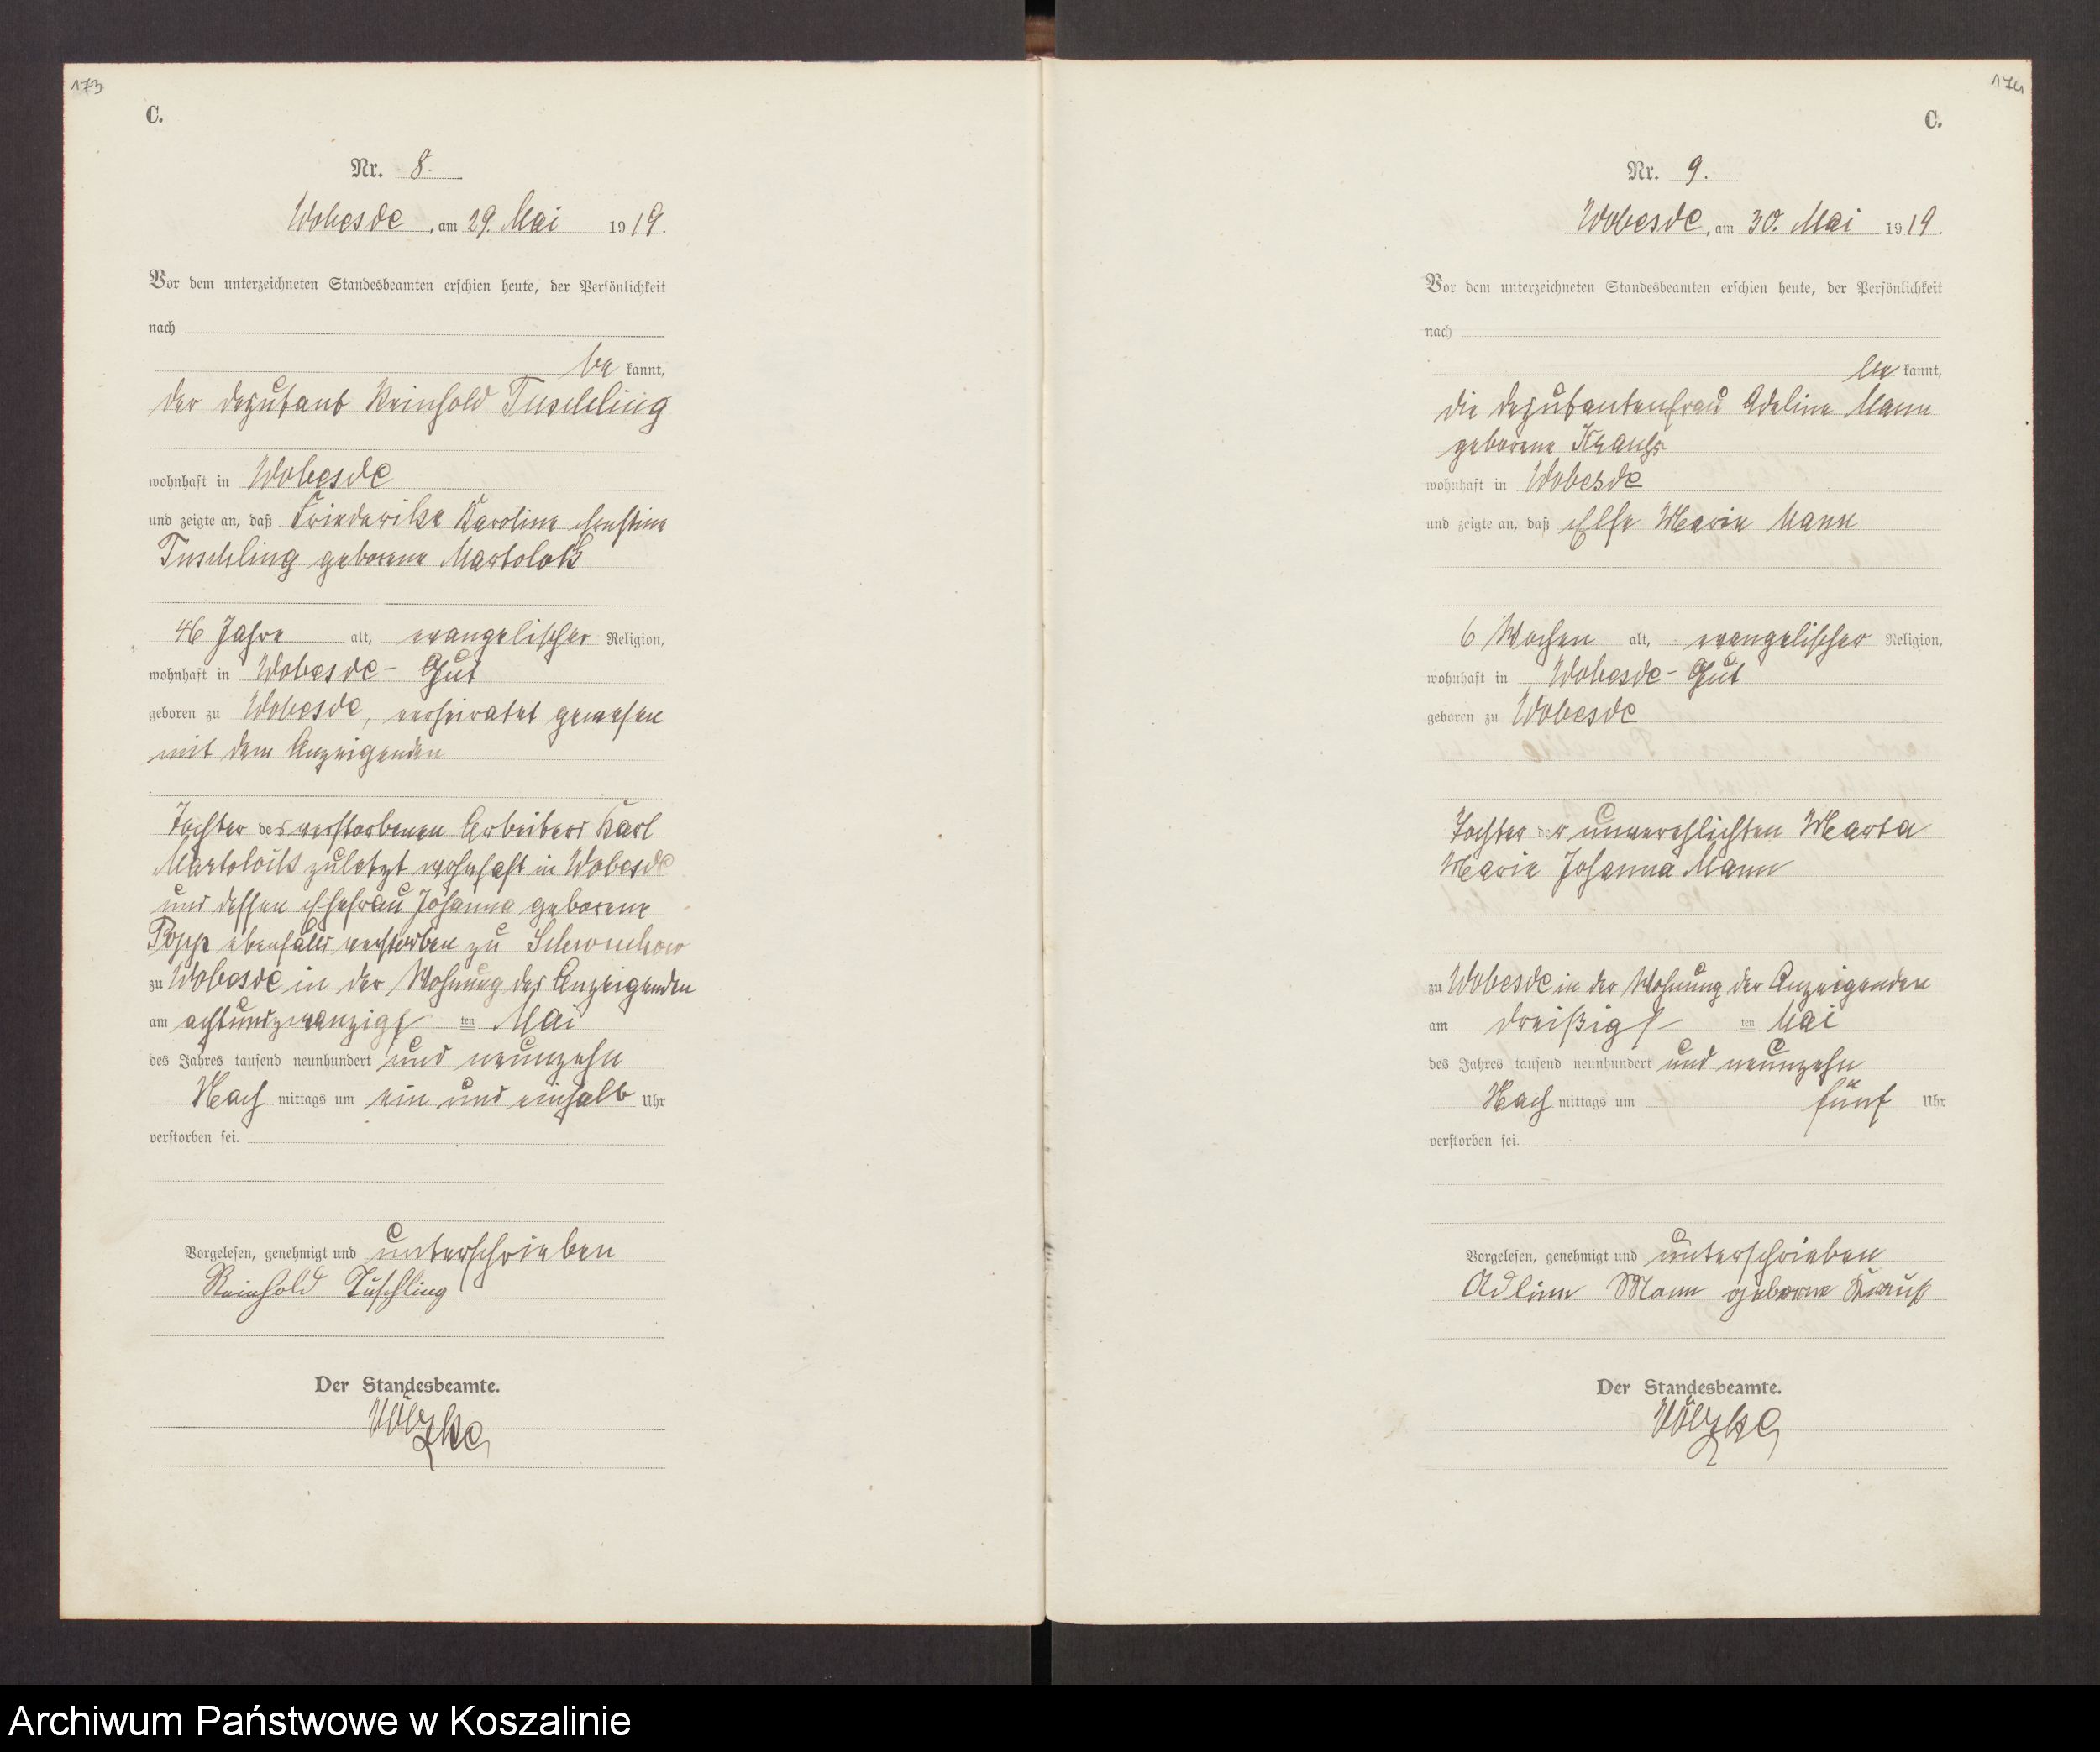 173
C.
Nr. 8.
Wobesde, am 29. Mai 1919.
Vor dem unterzeichneten Standesbeamten erschien heute, der Persönlichkeit
nach
be kannt,
der Deputant Reinhold Tuschling
wohnhaft in Wobesde
und zeigte an, daß Friederike Karoline Ernstine
Tuschling geborene Martolok
46 Jahre alt, evangelischer Religion,
wohnhaft in Wobesde - Gut
geboren zu Wobesde, verheiratet gewesen
mit dem Anzeigenden
Tochter des verstorbenen Arbeiters Karl
zuletzt wohnhaft in Wobesde
und dessen Ehefrau Johanna geborene
Popp ebenfalls verstorben zu Schwuchow
zu Wobesde in der Wohnung des Anzeigenden
am achtundzwanzigsten Mai
des Jahres tausend neunhundert und neunzehn
Nach mittags um ein und einhalb Uhr
verstorben sei.
Vorgelesen, genehmigt und unterschrieben
Reinhold Tuschling
Der Standesbeamte.
174
C.
Nr. 9.
Wobesde, am 30. Mai 1919.
Vor dem unterzeichneten Standesbeamten erschien heute, der Persönlichkeit
nach
be kannt,
die Deputantenfrau Adeline Mann
geborene Krauß
wohnhaft in Wobesde
und zeigte an, daß Else Marie Mann
6 Wochen alt, evangelischer Religion,
wohnhaft in Wobesde - Gut
geboren zu Wobesde
Tochter der unverehlichten Marta
Marie Johanna Mann
zu Wobesde in der Wohnung der Anzeigenden
am dreißigsten Mai
des Jahres tausend neunhundert und neunzehn
Nach mittags um fünf Uhr
verstorben sei.
Vorgelesen, genehmigt und unterschrieben
Adline Mann geborne Krauß
Der Standesbeamte.
Archiwum Państwowe w Koszalinie